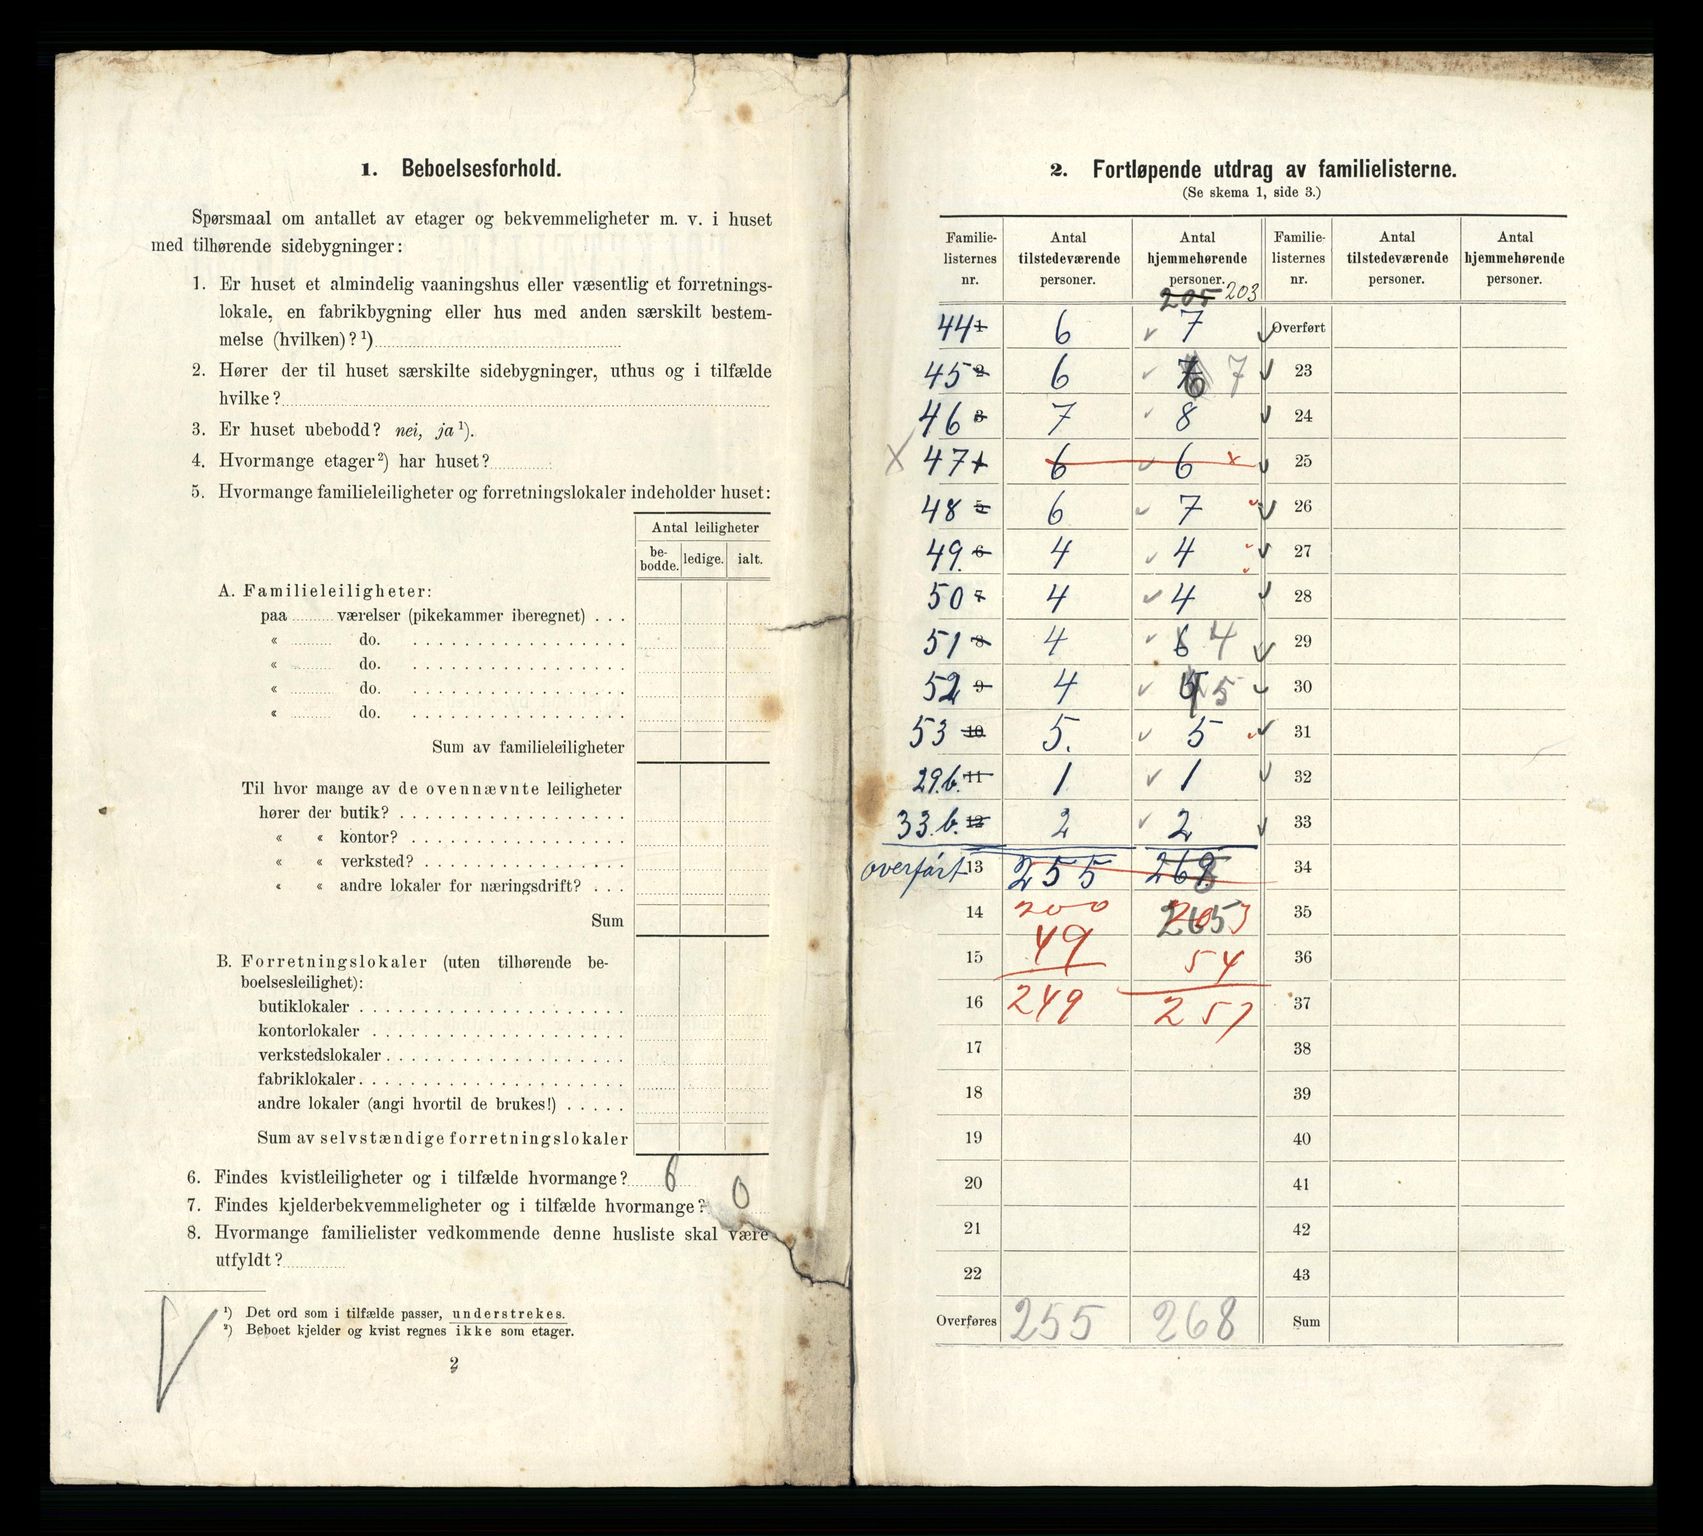 1. Beboelsesforhold.
Spørsmaal om antallet av etager og bekvemmeligheter m. v. i huset
med tilhørende sidebygninger:
1. Er huset et almindelig vaaningshus eller væsentlig et forretnings-
lokale, en fabrikbygning eller hus med anden særskilt bestem-
melse (hvilken)? ¹)
2. Hører der til huset særskilte sidebygninger, uthus og i tilfælde
hvilke?
3. Er huset ubebodd? nei, ja ¹).
4. Hvormange etager ²) har huset?
5. Hvormange familieleiligheter og forretningslokaler indeholder huset:
Antal leiligheter
be-
bodde. ledige. ialt.
A. Familieleiligheter:
paa værelser (pikekammer iberegnet) . . .
« do.
« do.
« do.
« do.
Sum av familieleiligheter
Til hvor mange av de ovennævnte leiligheter
hører der butik?
« « kontor?
« « verksted?
« « andre lokaler for næringsdrift?
Sum
B. Forretningslokaler (uten tilhørende be-
boelsesleilighet):
butiklokaler
kontorlokaler
verkstedslokaler
fabriklokaler
andre lokaler (angi hvortil de brukes!)
Sum av selvstændige forretningslokaler
6. Findes kvistleiligheter og i tilfælde hvormange? 6
7. Findes kjelderbekvemmeligheter og i tilfælde hvormange? 0
8. Hvormange familielister vedkommende denne husliste skal være
utfyldt?
¹) Det ord som i tilfælde passer, understrekes.
²) Beboet kjelder og kvist regnes ikke som etager.
2
2. Fortløpende utdrag av familielisterne.
(Se skema 1, side 3.)
Familie- Antal Antal Familie- Antal Antal
listernes tilstedeværende hjemmehørende listernes tilstedeværende hjemmehørende
nr. personer. personer. nr. personer. personer.
205 203
44 1 6 7 Overført
45 2 6 7 23
46 3 7 8 24
X 47 4 6 6 x 25
48 5 6 7 26
49. 6 4 4 27
50 7 4 4 28
51 8 4 6 4 29
52 9 4 5 30
53 10 5. 5 31
29.b. 11 1 1 32
33.b. 12 2 2 33
overført 13 255 268 34
14 200 203 35
15 49 54 36
16 249 257 37
17 38
18 39
19 40
20 41
21 42
22 43
Overføres 255 268 Sum